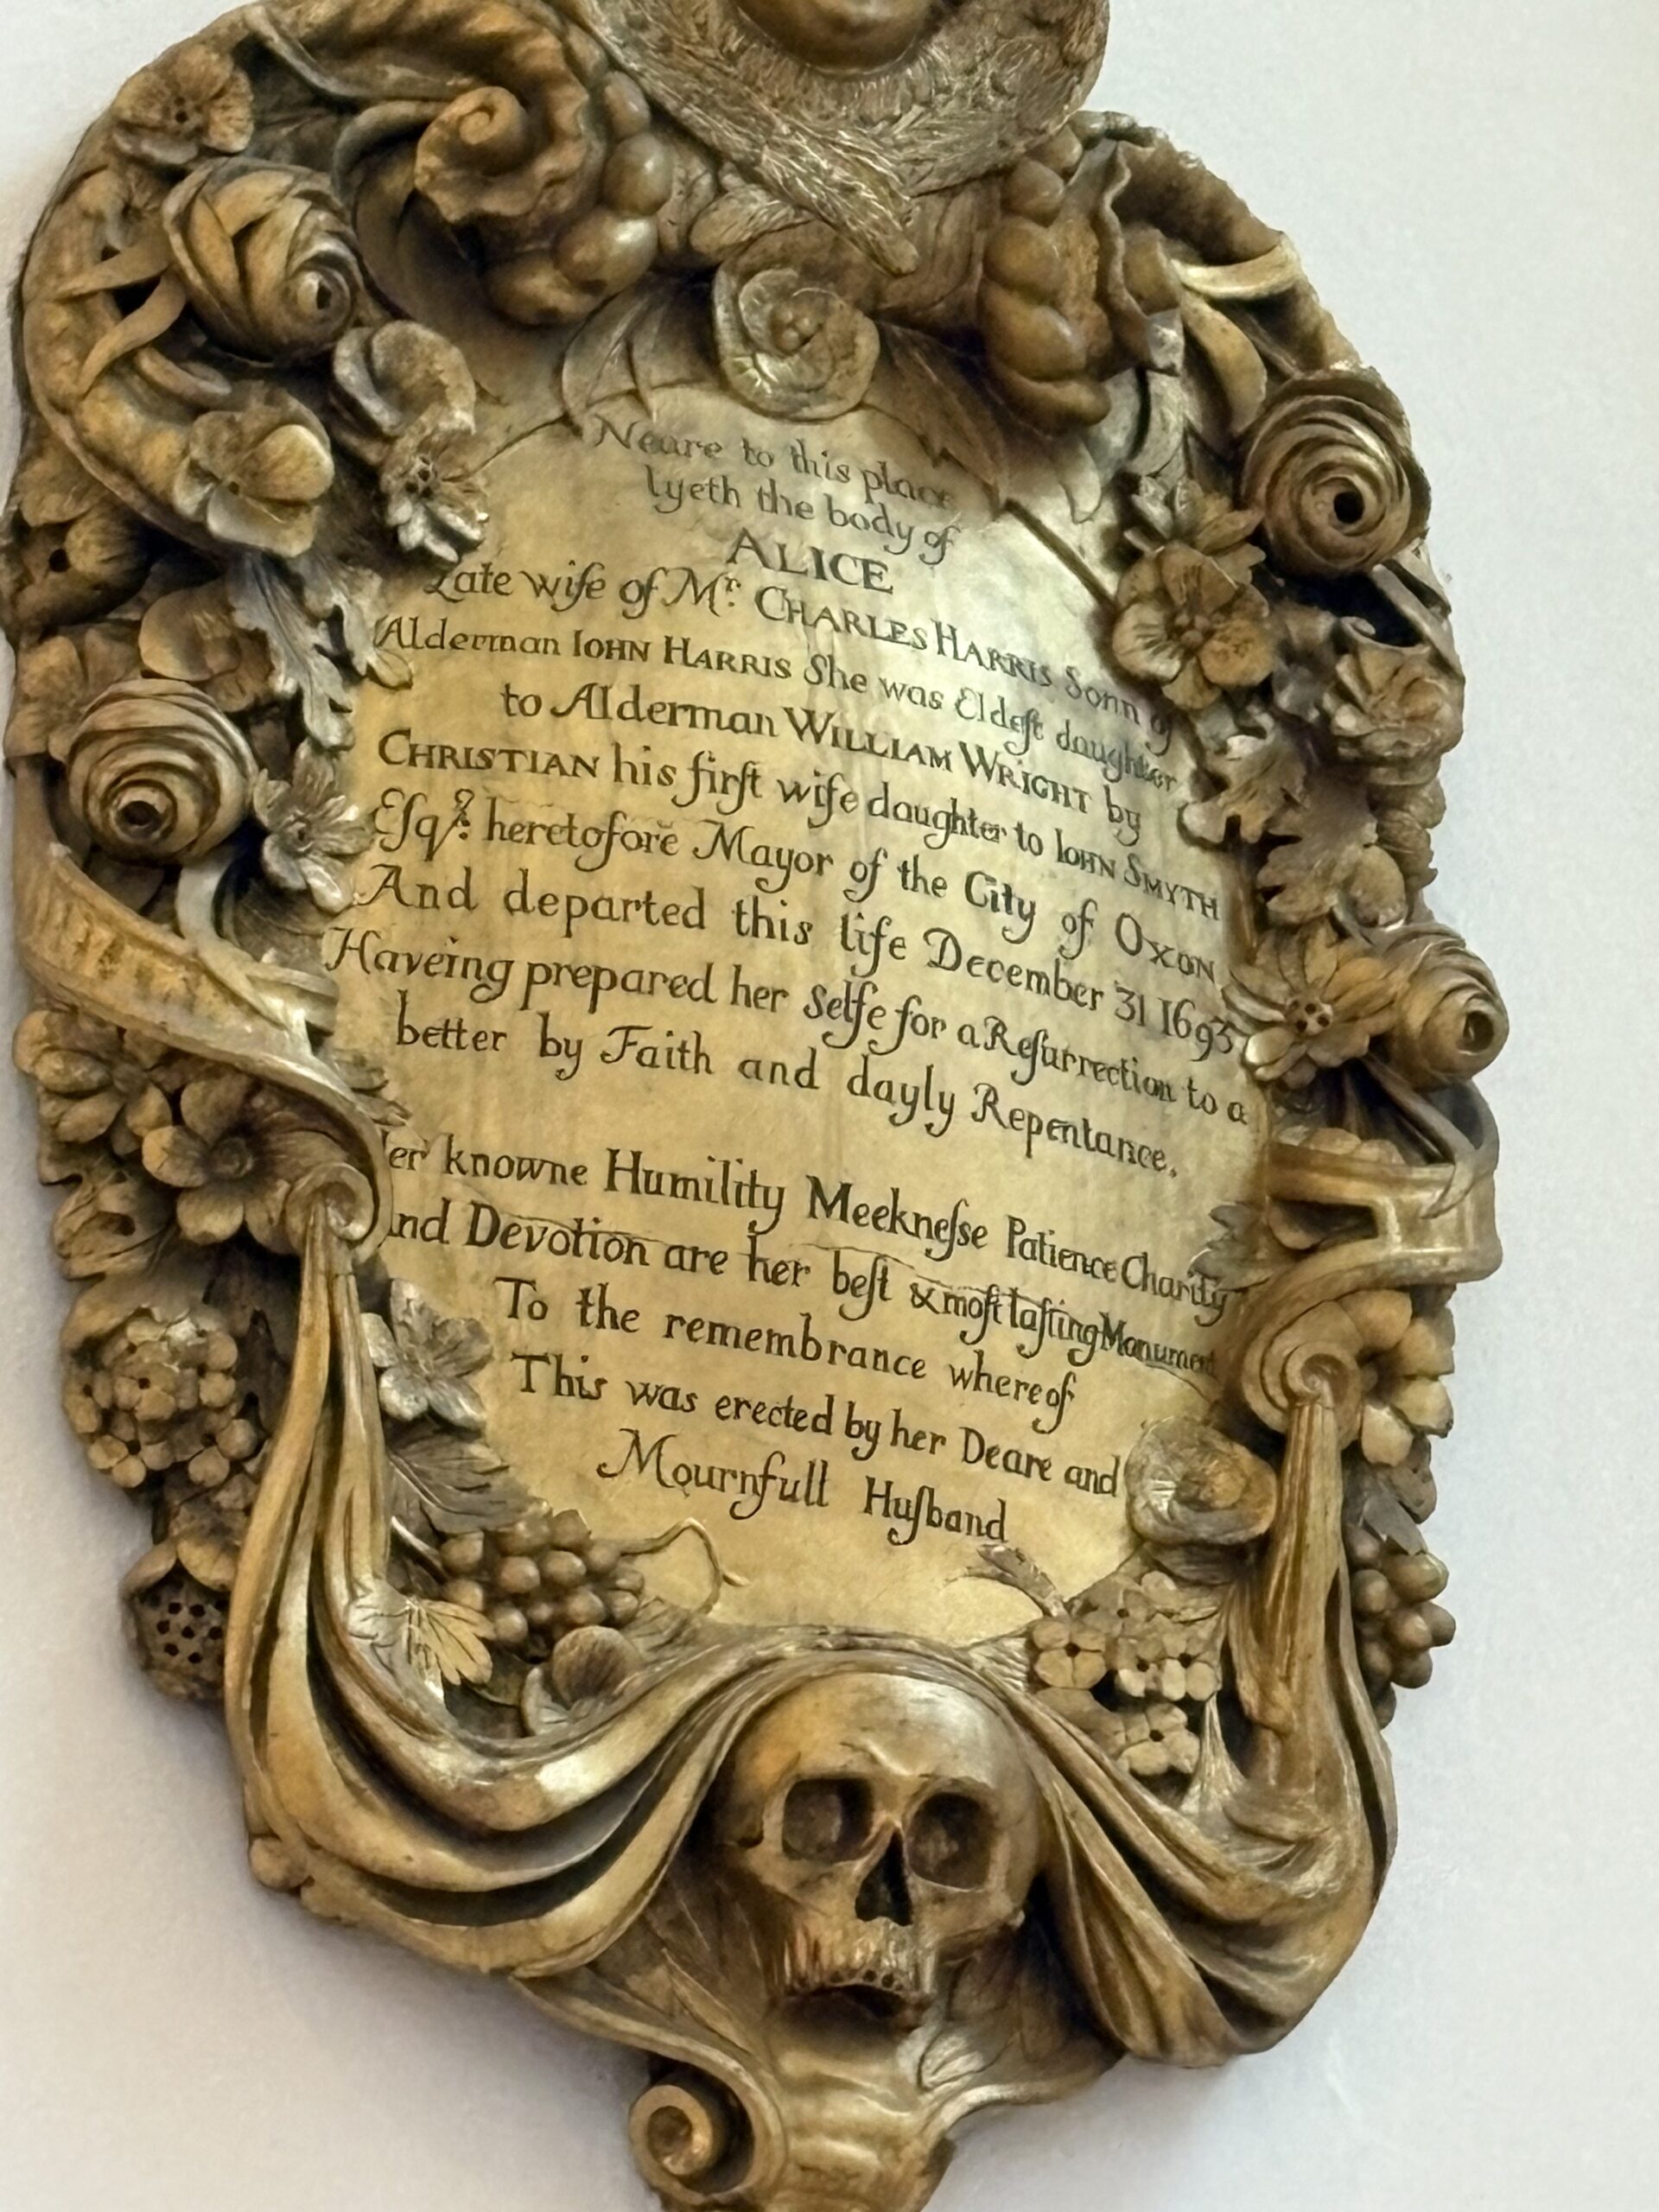 Neare to this place
lyeth the body of
ALICE
Late wife of Mr. CHARLES HARRIS Sonn of
Alderman IOHN HARRIS She was Eldeſt daughter
to Alderman WILLIAM WRIGHT by
CHRISTIAN his firſt wife daughter to IOHN SMYTH
Eſqr: heretofore Mayor of the City of OXON
And departed this life December 31 1693
Haveing prepared her Selfe for a Reſurrection to a
better by Faith and dayly Repentance.
Her knowne Humility Meekneſse Patience Charity
And Devotion are her beſt & moſt laſting Monument
To the remembrance whereof
This was erected by her Deare and
Mournfull Huſband